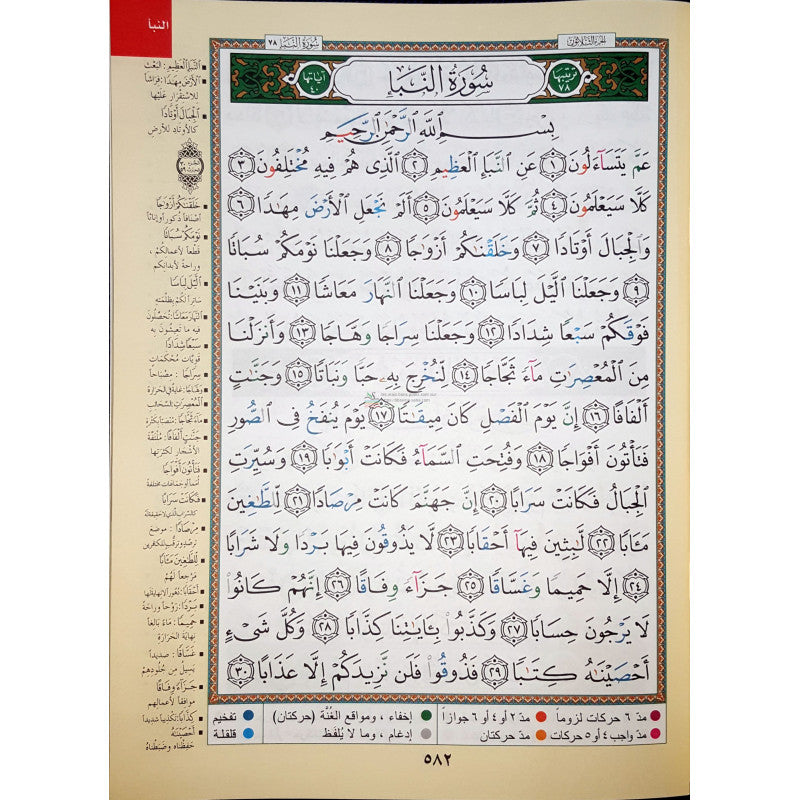 النبأ
الجزء الثلاثون
سورة النبأ ٧٨
ترتيبها ٧٨
سُورَةُ النَّبَإِ
آياتها ٤٠
بِسْمِ ٱللَّهِ ٱلرَّحْمَٰنِ ٱلرَّحِيمِ
عَمَّ يَتَسَآءَلُونَ ١ عَنِ ٱلنَّبَإِ ٱلْعَظِيمِ ٢ ٱلَّذِى هُمْ فِيهِ مُخْتَلِفُونَ ٣
كَلَّا سَيَعْلَمُونَ ٤ ثُمَّ كَلَّا سَيَعْلَمُونَ ٥ أَلَمْ نَجْعَلِ ٱلْأَرْضَ مِهَٰدًا ٦
وَٱلْجِبَالَ أَوْتَادًا ٧ وَخَلَقْنَٰكُمْ أَزْوَٰجًا ٨ وَجَعَلْنَا نَوْمَكُمْ سُبَاتًا
٩ وَجَعَلْنَا ٱلَّيْلَ لِبَاسًا ١٠ وَجَعَلْنَا ٱلنَّهَارَ مَعَاشًا ١١ وَبَنَيْنَا
فَوْقَكُمْ سَبْعًا شِدَادًا ١٢ وَجَعَلْنَا سِرَاجًا وَهَّاجًا ١٣ وَأَنزَلْنَا
مِنَ ٱلْمُعْصِرَٰتِ مَآءً ثَجَّاجًا ١٤ لِّنُخْرِجَ بِهِۦ حَبًّا وَنَبَاتًا ١٥ وَجَنَّٰتٍ
أَلْفَافًا ١٦ إِنَّ يَوْمَ ٱلْفَصْلِ كَانَ مِيقَٰتًا ١٧ يَوْمَ يُنفَخُ فِى ٱلصُّورِ
فَتَأْتُونَ أَفْوَاجًا ١٨ وَفُتِحَتِ ٱلسَّمَآءُ فَكَانَتْ أَبْوَٰبًا ١٩ وَسُيِّرَتِ
ٱلْجِبَالُ فَكَانَتْ سَرَابًا ٢٠ إِنَّ جَهَنَّمَ كَانَتْ مِرْصَادًا ٢١ لِّلطَّٰغِينَ
مَـَٔابًا ٢٢ لَّٰبِثِينَ فِيهَآ أَحْقَابًا ٢٣ لَّا يَذُوقُونَ فِيهَا بَرْدًا وَلَا شَرَابًا
٢٤ إِلَّا حَمِيمًا وَغَسَّاقًا ٢٥ جَزَآءً وِفَاقًا ٢٦ إِنَّهُمْ كَانُوا۟
لَا يَرْجُونَ حِسَابًا ٢٧ وَكَذَّبُوا۟ بِـَٔايَٰتِنَا كِذَّابًا ٢٨ وَكُلَّ شَىْءٍ
أَحْصَيْنَٰهُ كِتَٰبًا ٢٩ فَذُوقُوا۟ فَلَن نَّزِيدَكُمْ إِلَّا عَذَابًا ٣٠
النَّبَإِ الْعَظِيمِ: البَعْث
الْأَرْضَ مِهَادًا: فِرَاشًا
للاستقرار عليها
الْجِبَالَ أَوْتَادًا
كالأوتاد للأرض
خَلَقْنَاكُمْ أَزْوَاجًا
أصنافاً ذكوراً وإناثاً
نَوْمَكُمْ سُبَاتًا
قطعاً لأعمالكم ،
وراحة لأبدانكم
اللَّيْلَ لِبَاسًا
ساتراً لكم بظلمته
النَّهَارَ مَعَاشًا: تحصلون
فيه ما تعيشون به
سَبْعًا شِدَادًا
قويات محكمات
سِرَاجًا : مصباحاً
وَهَّاجًا: غاية في الحرارة
الْمُعْصِرَاتِ: السحائب
مَاءً ثَجَّاجًا: منصباً بكثرة
جَنَّاتٍ أَلْفَافًا: ملتفة
الأشجار لكثرتها
فَتَأْتُونَ أَفْوَاجًا
أمماً أو جماعات مختلفة
فَكَانَتْ سَرَابًا
كالسراب الذي لا حقيقة له
مِرْصَادًا : موضع
ترصد وترقب للكافرين
لِلطَّاغِينَ مَآبًا
مرجعاً لهم
أَحْقَابًا: دهوراً لا نهاية لها
بَرْدًا: رَوْحاً وراحة
حَمِيمًا: ماءً بالغاً
نهاية الحرارة
غَسَّاقًا: صديداً
يسيل من جلودهم
جَزَاءً وِفَاقًا
موافقاً لأعمالهم
كِذَّابًا: تكذيباً شديداً
أَحْصَيْنَاهُ
حفظناه وضبطناه
مدّ ٦ حركات لزوماً مدّ ٢ أو ٤ أو ٦ جوازاً إخفاء ، ومواقع الغُنَّة (حركتان) تفخيم
مدّ واجب ٤ أو ٥ حركات مدّ حركتان إدغام ، وما لا يُلفَظ قلقلة
٥٨٢